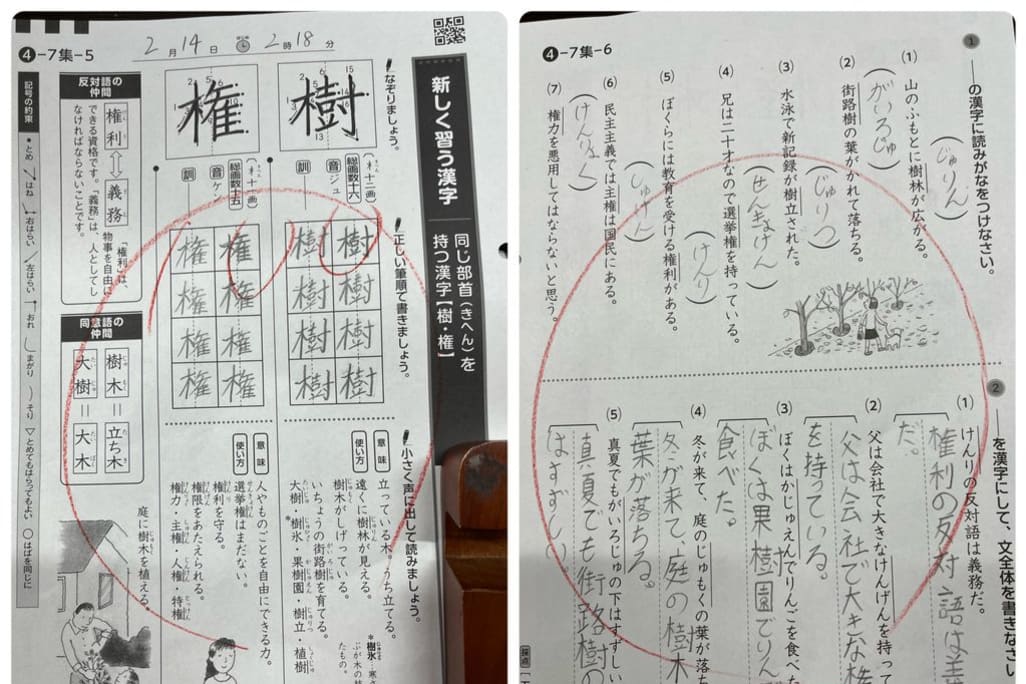 ❹-7集-5
2月14日 2時18分
新しく習う漢字
同じ部首(きへん)を持つ漢字【樹・権】
なぞりましょう。
樹
権
正しい筆順で書きましょう。
総画数十六
音 ジュ
訓
樹 樹 樹 樹
樹 樹 樹 樹
総画数十五
音 ケン
訓
権 権 権 権
権 権 権 権
小さく声に出して読みましょう。
意味
立っている木。うち立てる。
使い方
遠くに樹林が見える。
樹木がしげっている。
いちょうの街路樹を育てる。
大樹・樹氷・果樹園・樹立・植樹
意味
人やものごとを自由にできる力。
使い方
選挙権はまだない。
権利を守る。
権限をあたえられる。
権力・主権・人権・特権
庭に樹木を植える。
反対語の仲間
権利⇔義務
「権利」は、物事を自由にできる資格です。「義務」は、人としてしなければならないことです。
同意語の仲間
樹木=立ち木
大樹=大木
記号の約束
とめ
はね
右はらい
左はらい
おれ
まがり
そり
とめてもはらってもよい
はばを同じに
❹-7集-6
1 の漢字に読みがなをつけなさい。
(1) 山のふもとに樹林が広がる。
(じゅりん)
(2) 街路樹の葉がかれて落ちる。
(がいろじゅ)
(3) 水泳で新記録が樹立された。
(じゅりつ)
(4) 兄は二十才なので選挙権を持っている。
(せんきょけん)
(5) ぼくらには教育を受ける権利がある。
(けんり)
(6) 民主主義では主権は国民にある。
(しゅけん)
(7) 権力を悪用してはならないと思う。
(けんりょく)
2 を漢字にして、文全体を書きなさい
(1) けんりの反対語は義務だ。
権利の反対語は義
だ。
(2) 父は会社で大きなけんげんを持って
父は会社で大きな権
を持っている。
(3) ぼくはかじゅえんでりんごを食べた
ぼくは果樹園でりん
食べた。
(4) 冬が来て、庭のじゅもくの葉が落ち
冬が来て、庭の樹木
葉が落ちる。
(5) 真夏でもがいろじゅの下はすずしい
真夏でも街路樹の
はすずしい